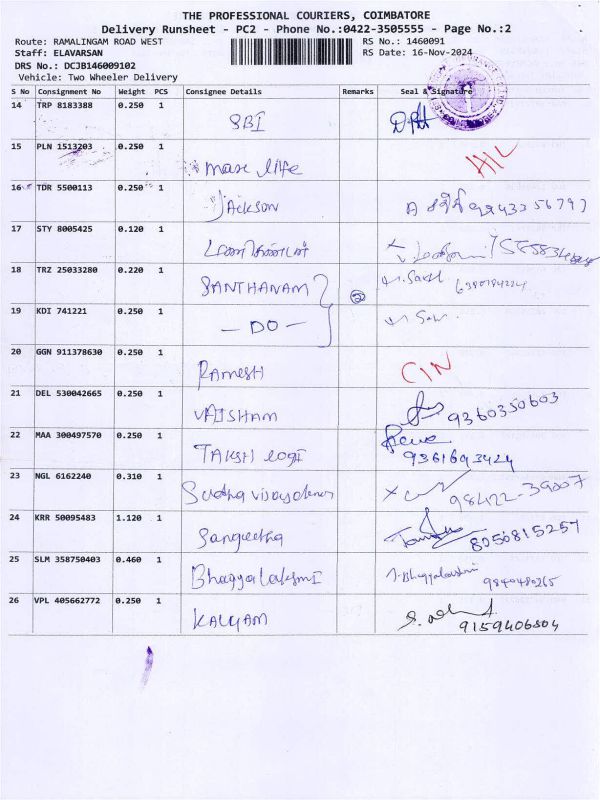 THE PROFESSIONAL COURIERS, COIMBATORE
Delivery Runsheet - PC2 - Phone No.:0422-3505555 - Page No.:2
Route: RAMALINGAM ROAD WEST RS No.: 1460091
Staff: ELAVARSAN RS Date: 16-Nov-2024
DRS No.: DCJB146009102
Vehicle: Two Wheeler Delivery
S No Consignment No Weight PCS Consignee Details Remarks Seal & Signature
14 TRP 8183388 0.250 1 SBI
15 PLN 1513203 0.250 1 max life
16 TDR 5500113 0.250 1 JACKSON
17 STY 8005425 0.120 1
18 TRZ 25033280 0.220 1 SANTHANAM 2
19 KDI 741221 0.250 1 - DO -
20 GGN 911378630 0.250 1 RAMESH CIN
21 DEL 530042665 0.250 1 9360350603
22 MAA 300497570 0.250 1 TAKSH LOGI 9361693424
23 NGL 6162240 0.310 1 98422-39007
24 KRR 50095483 1.120 1 Sangeetha 8050815257
25 SLM 358750403 0.460 1 Bhagyalakshmi 9840480265
26 VPL 405662772 0.250 1 KALYAM 9159406804